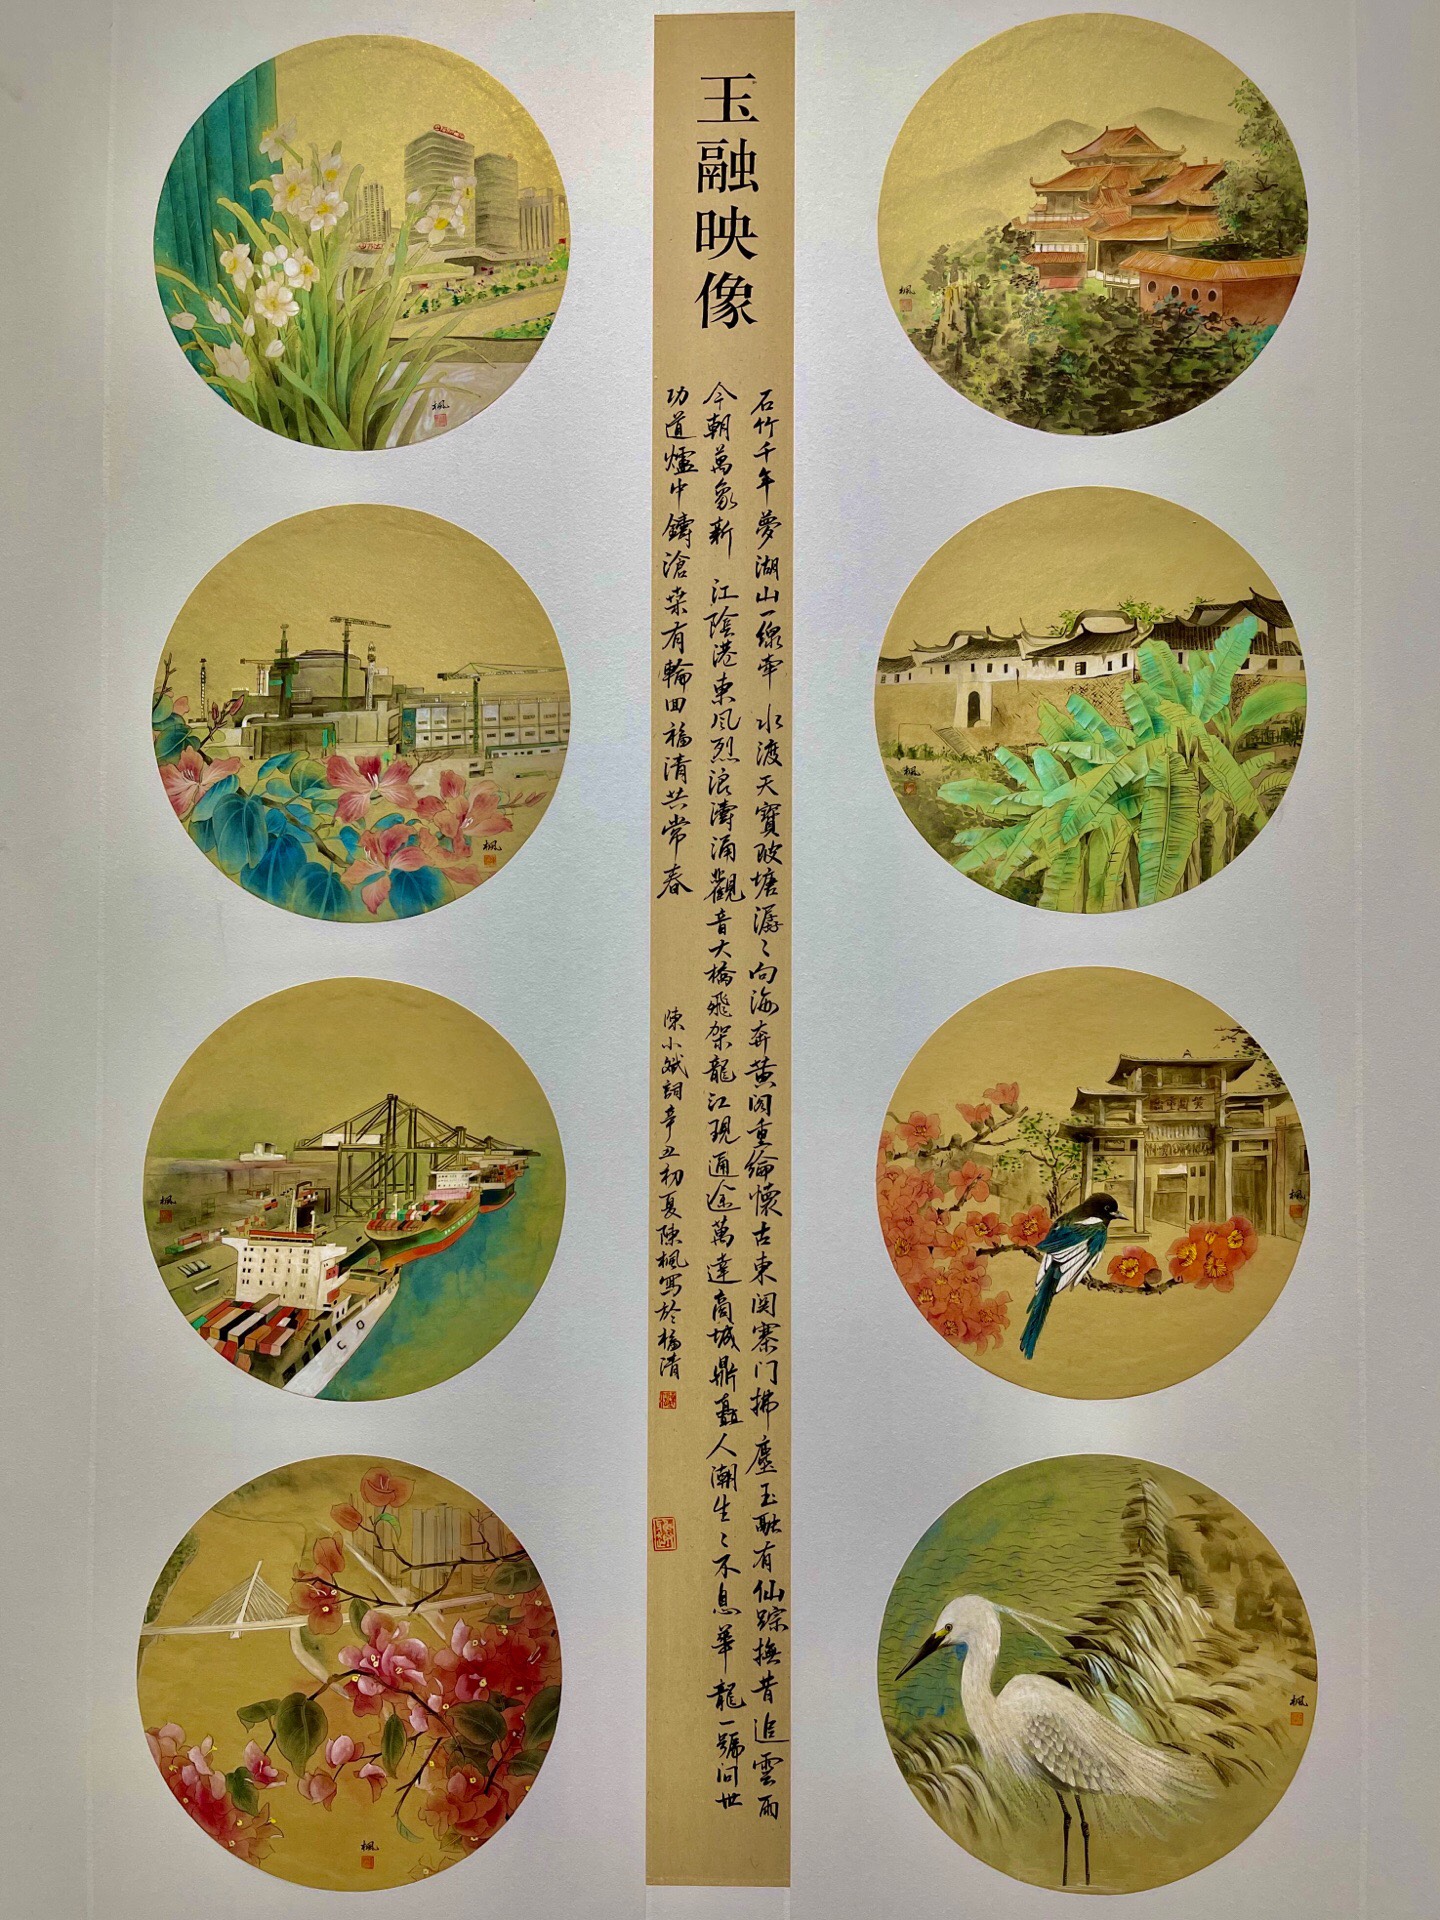 玉融映像
石竹千年夢湖山一線牽 水渡天寶陂塘潺〻向海奔黄阁重綸懷古東関寨门拂塵玉融有仙踪撫昔追雲雨
今朝萬象新 江陰港東風烈浪濤涌觀音大橋飛架龍江現通途萬達商城鼎矗人潮生〻不息華龍一號问世
功道爐中鑄滄桒有輪回福清共常春
陳小斌詞辛丑初夏陳楓寫於福清
楓
楓
楓
楓
楓
楓
楓
楓